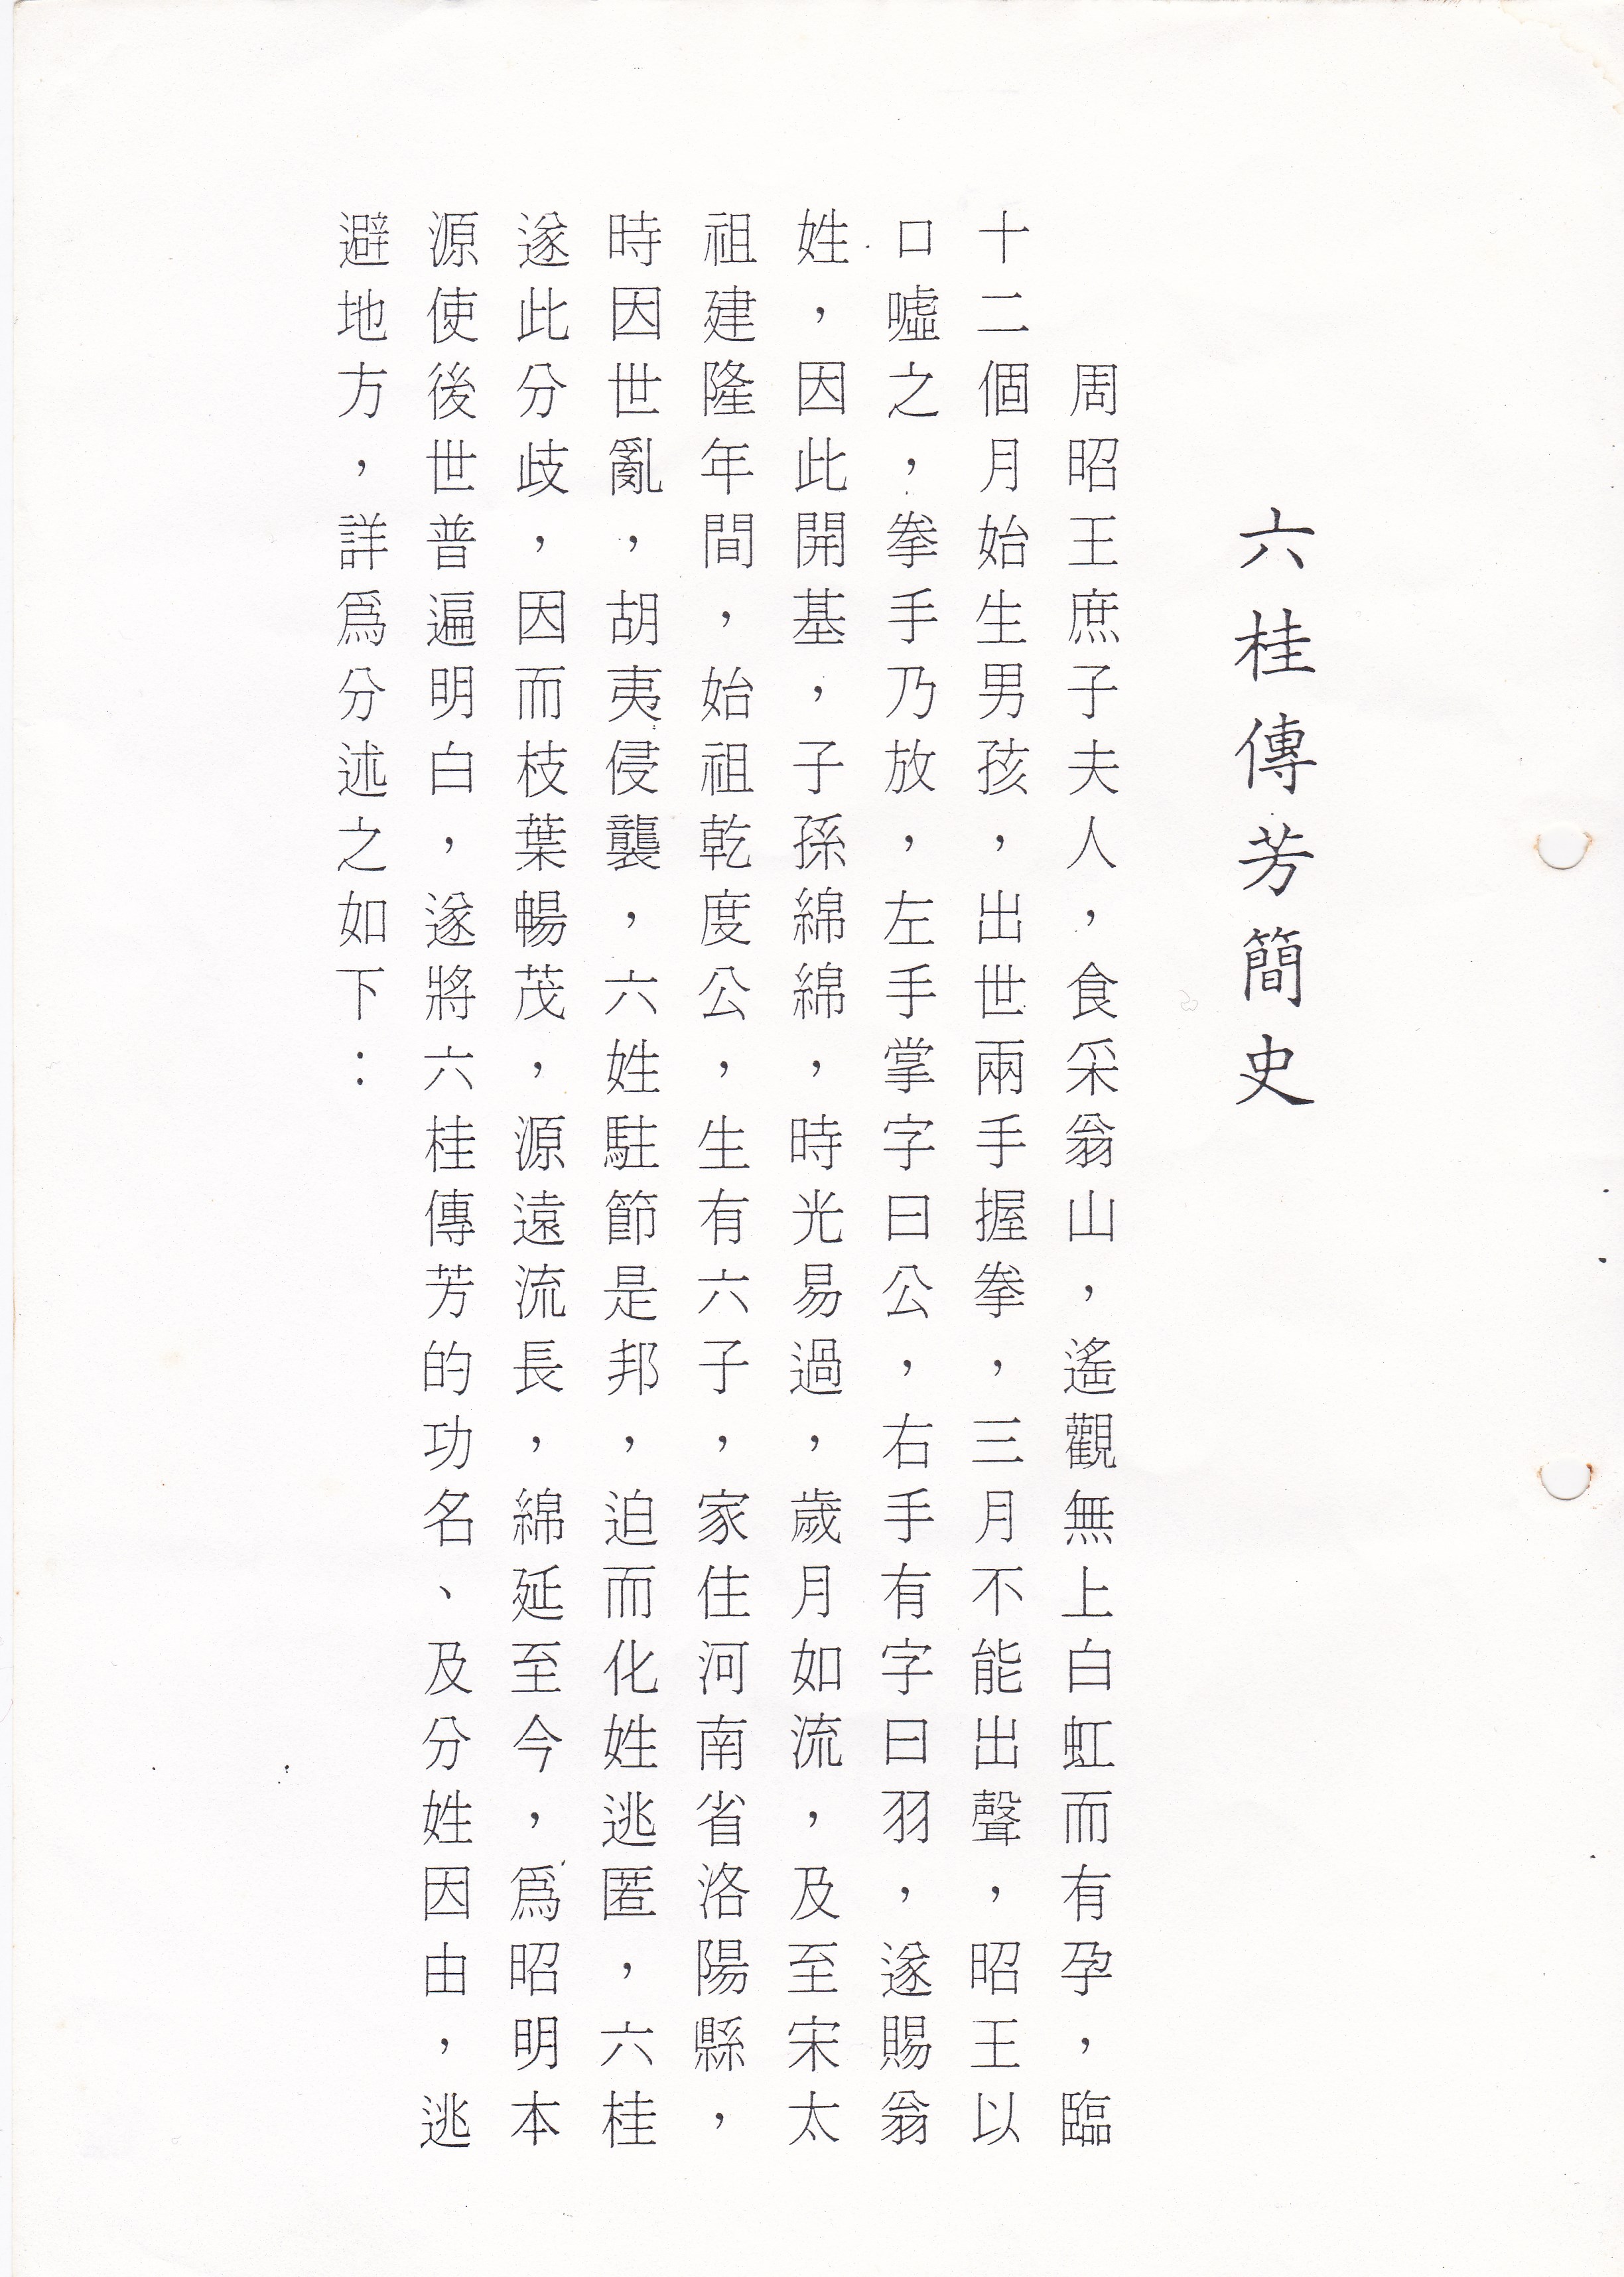 六桂傳芳簡史
周昭王庶子夫人，食采翁山，遙觀無上白虹而有孕，臨
十二個月始生男孩，出世兩手握拳，三月不能出聲，昭王以
口噓之，拳手乃放，左手掌字曰公，右手有字曰羽，遂賜翁
姓，因此開基，子孫綿綿，時光易過，歲月如流，及至宋太
祖建隆年間，始祖乾度公，生有六子，家住河南省洛陽縣，
時因世亂，胡夷侵襲，六姓駐節是邦，迫而化姓逃匿，六桂
遂此分歧，因而枝葉暢茂，源遠流長，綿延至今，爲昭明本
源使後世普遍明白，遂將六桂傳芳的功名、及分姓因由，逃
避地方，詳爲分述之如下：